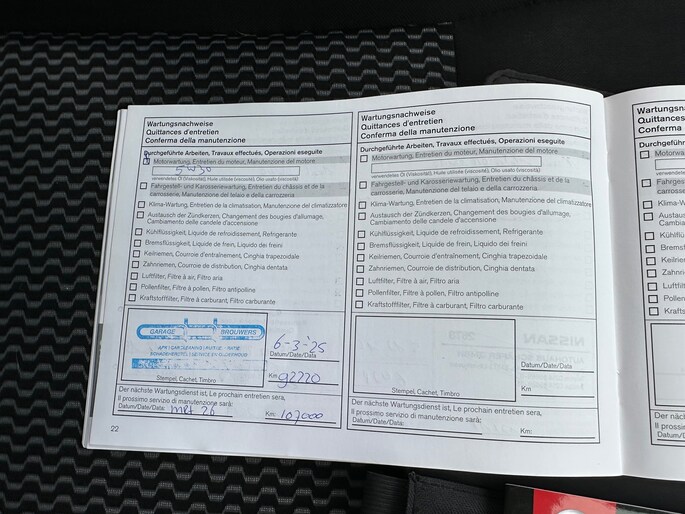 Wartungsnachweise
Quittances d'entretien
Conferma della manutenzione
Durchgeführte Arbeiten, Travaux effectués, Operazioni eseguite
Motorwartung, Entretien du moteur, Manutenzione del motore
5W30
verwendetes Öl (Viskosität), Huile utilisée (viscosité), Olio usato (viscosità)
Fahrgestell- und Karosseriewartung, Entretien du châssis et de la
carrosserie, Manutenzione del telaio e della carrozzeria
Klima-Wartung, Entretien de la climatisation, Manutenzione del climatizzatore
Austausch der Zündkerzen, Changement des bougies d'allumage,
Cambiamento delle candele d'accensione
Kühlflüssigkeit, Liquide de refroidissement, Refrigerante
Bremsflüssigkeit, Liquide de frein, Liquido dei freini
Keilriemen, Courroie d'entraînement, Cinghia trapezoidale
Zahnriemen, Courroie de distribution, Cinghia dentata
Luftfilter, Filtre à air, Filtro aria
Pollenfilter, Filtre à pollen, Filtro antipolline
Kraftstofffilter, Filtre à carburant, Filtro carburante
GARAGE BROUWERS
Stempel, Cachet, Timbro
6-3-'25
Datum/Date/Data
Km: 92220
Der nächste Wartungsdienst ist, Le prochain entretien sera,
Il prossimo servizio di manutenzione sarà:
Datum/Date/Data: mrt 26
Km: 107000
22
Wartungsnachweise
Quittances d'entretien
Conferma della manutenzione
Durchgeführte Arbeiten, Travaux effectués, Operazioni eseguite
Motorwartung, Entretien du moteur, Manutenzione del motore
verwendetes Öl (Viskosität), Huile utilisée (viscosité), Olio usato (viscosità)
Fahrgestell- und Karosseriewartung, Entretien du châssis et de la
carrosserie, Manutenzione del telaio e della carrozzeria
Klima-Wartung, Entretien de la climatisation, Manutenzione del climatizzatore
Austausch der Zündkerzen, Changement des bougies d'allumage,
Cambiamento delle candele d'accensione
Kühlflüssigkeit, Liquide de refroidissement, Refrigerante
Bremsflüssigkeit, Liquide de frein, Liquido dei freini
Keilriemen, Courroie d'entraînement, Cinghia trapezoidale
Zahnriemen, Courroie de distribution, Cinghia dentata
Luftfilter, Filtre à air, Filtro aria
Pollenfilter, Filtre à pollen, Filtro antipolline
Kraftstofffilter, Filtre à carburant, Filtro carburante
Stempel, Cachet, Timbro
Datum/Date/Data
Km:
Der nächste Wartungsdienst ist, Le prochain entretien sera,
Il prossimo servizio di manutenzione sarà:
Datum/Date/Data:
Km:
Wartungsn
Quittances
Conferma
Durchgeführte
Motorwa
verwendetes
Fahrgestell
carrosserie
Klima-W
Austausch
Cambiam
Kühlflüs
Bremsfl
Keilriem
Zahnrie
Luftfilte
Pollenf
Kraftst
Der nächs
Il prossim
Datum/D